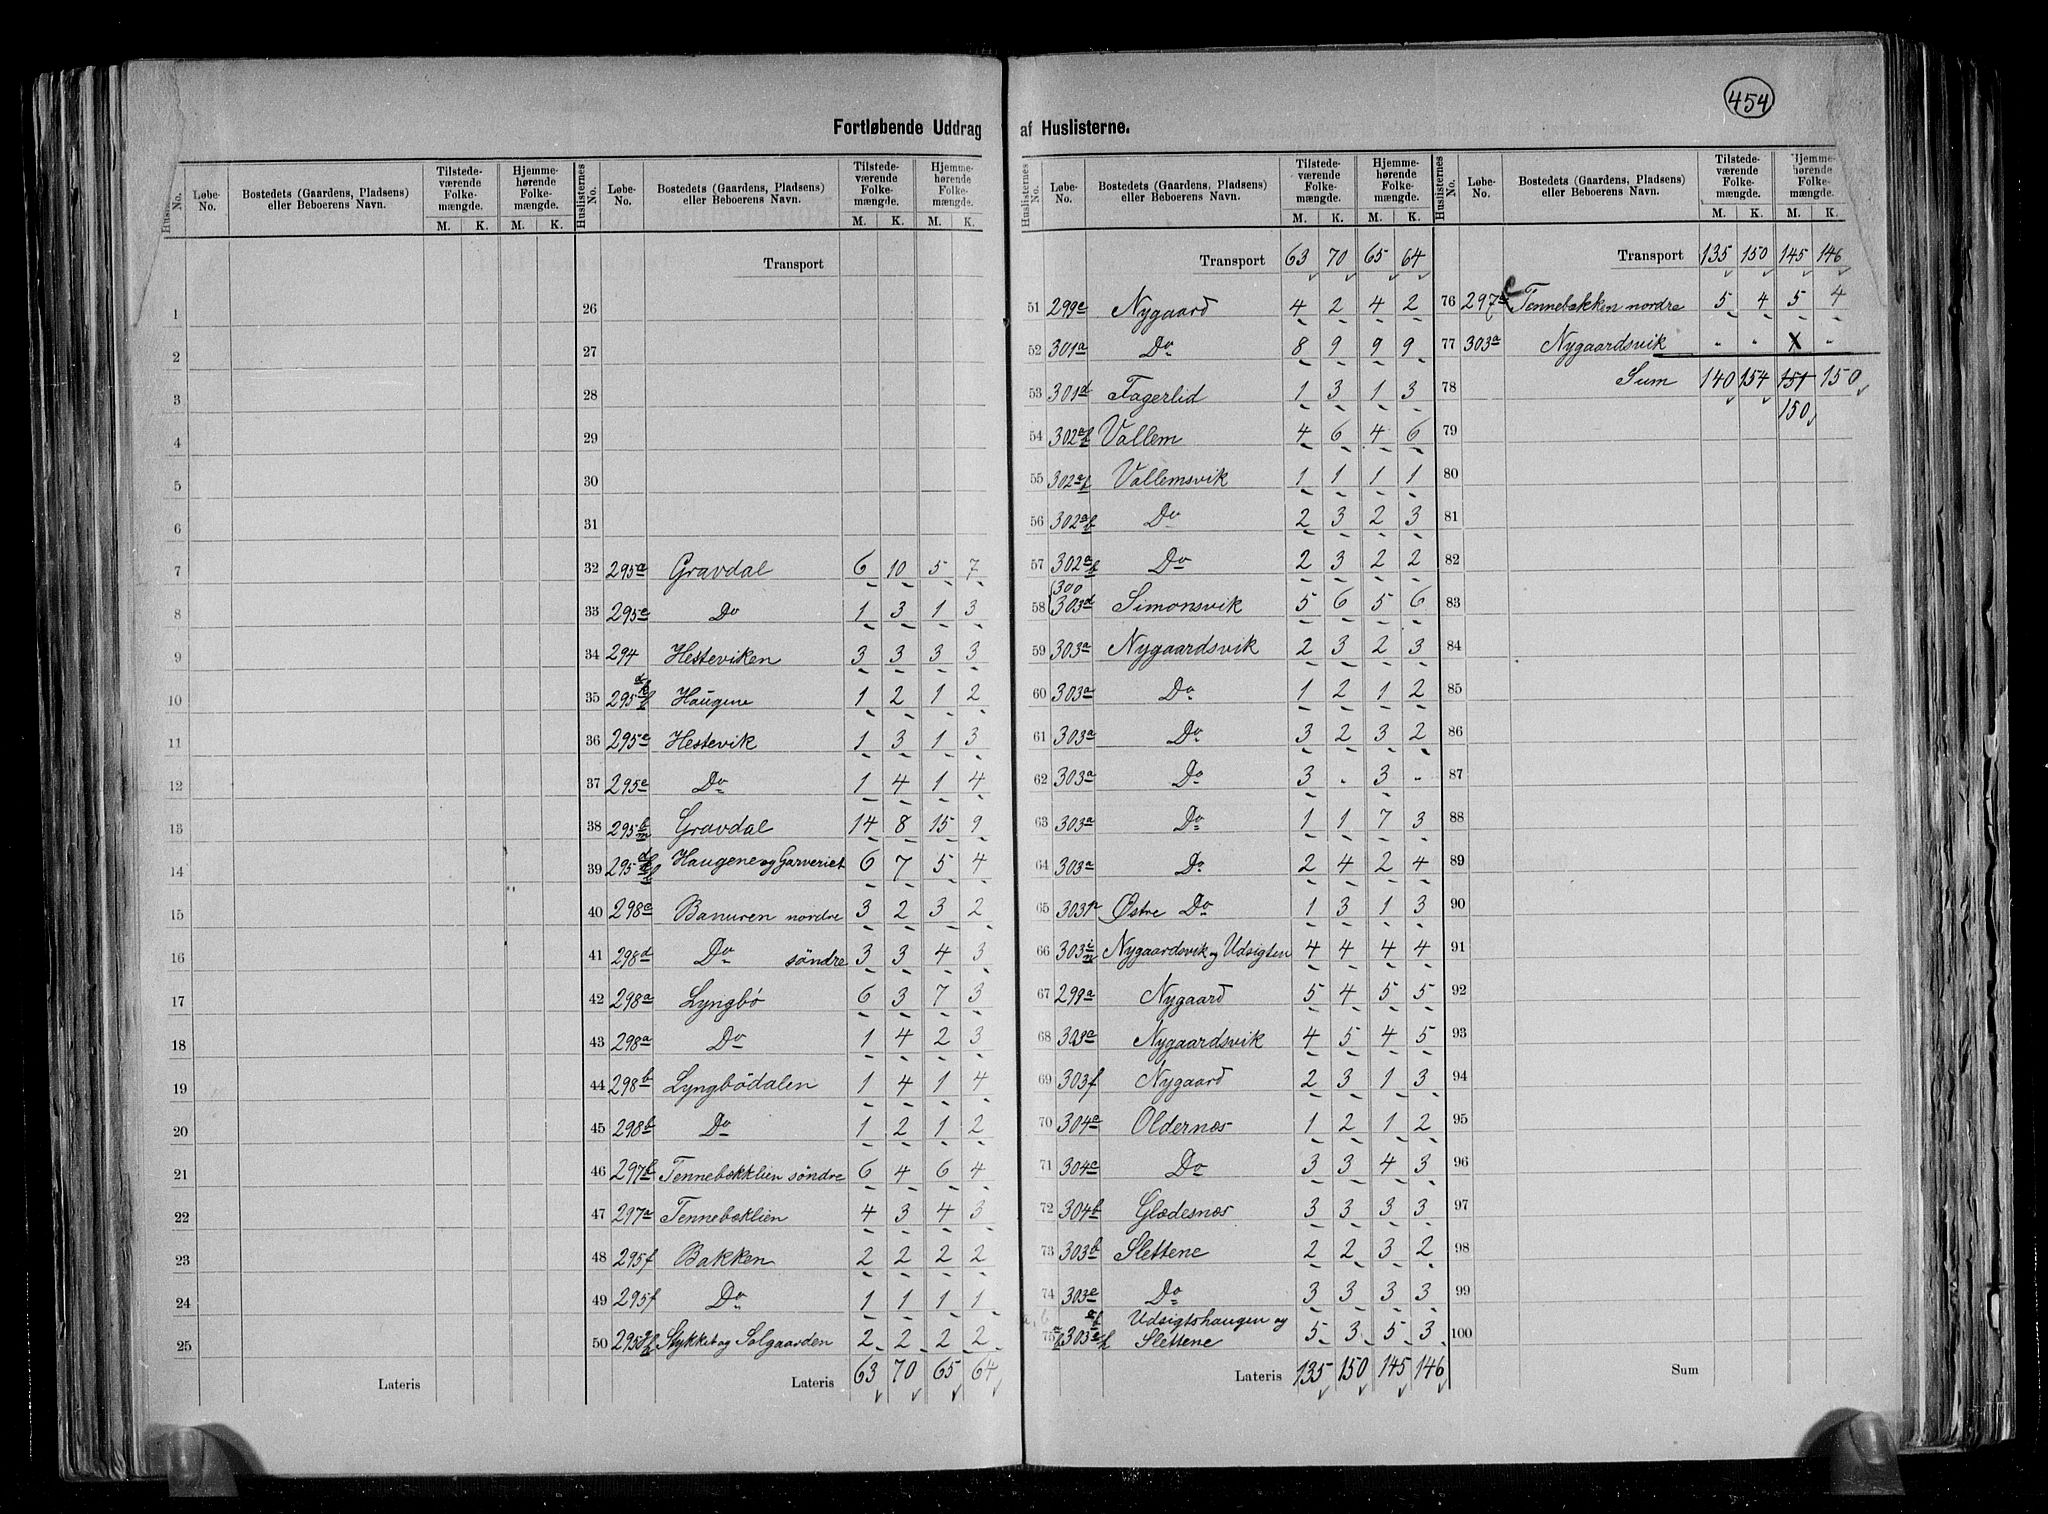 454
Fortløbende Uddrag af Huslisterne.
Løbe-No. Bostedets (Gaardens, Pladsens) eller Beboerens Navn. Tilstedeværende Folkemængde. M. K. Hjemmehørende Folkemængde. M. K.
1
2
3
4
5
6
7
8
9
10
11
12
13
14
15
16
17
18
19
20
21
22
23
24
25
Lateris
Huslisternes No. Løbe-No. Bostedets (Gaardens, Pladsens) eller Beboerens Navn. Tilstedeværende Folkemængde. M. K. Hjemmehørende Folkemængde. M. K.
Transport
26
27
28
29
30
31
32 295a Gravdal 6 10 5 7
33 295e Do 1 3 1 3
34 294 Hesteviken 3 3 3 3
35 295 Haugene 1 2 1 2
36 295e Hestevik 1 3 1 3
37 295e Do 1 4 1 4
38 295b m Gravdal 14 8 15 9
39 295 Haugene og Garveriet 6 7 5 4
40 298c Banuren nordre 3 2 3 2
41 298d Do söndre 3 3 4 3
42 298a Lyngbö 6 3 7 3
43 298a Do 1 4 2 3
44 298b Lyngbödalen 1 4 1 4
45 298b Do 1 2 1 2
46 297b Tennebækklien söndre 6 4 6 4
47 297a Tennebæklien 4 3 4 3
48 295f Bakken 2 2 2 2
49 295f Do 1 1 1 1
50 295 Stykket og Solgaarden 2 2 2 2
Lateris 63 70 65 64
Huslisternes No. Løbe-No. Bostedets (Gaardens, Pladsens) eller Beboerens Navn. Tilstedeværende Folkemængde. M. K. Hjemmehørende Folkemængde. M. K.
Transport 63 70 65 64
51 299c Nygaard 4 2 4 2
52 301a Do 8 9 9 9
53 301d Fagerlid 1 3 1 3
54 302a b Vallem 4 6 4 6
55 302a b Vallemsvik 1 1 1 1
56 302a b Do 2 3 2 3
57 302a b Do 2 3 2 2
58 300 303d Simonsvik 5 6 5 6
59 303a Nygaardsvik 2 3 2 3
60 303a Do 1 2 1 2
61 303a Do 3 2 3 2
62 303a Do 3 - 3 -
63 303a Do 1 1 7 3
64 303a Do 2 4 2 4
65 303 Østre Do 1 3 1 3
66 303c m Nygaardsvik og Udsigten 4 4 4 4
67 299a Nygaard 5 4 5 5
68 303a Nygaardsvik 4 5 4 5
69 303f Nygaard 2 3 1 3
70 304a Oldernæs 1 2 1 2
71 304a Do 3 3 4 3
72 304b Glædesnæs 3 3 3 3
73 303b Slettene 2 2 3 2
74 303e Do 3 3 3 3
75 303 Udsigtshaugen og Slettene 5 3 5 3
Lateris 135 150 145 146
Huslisternes No. Løbe-No. Bostedets (Gaardens, Pladsens) eller Beboerens Navn. Tilstedeværende Folkemængde. M. K. Hjemmehørende Folkemængde. M. K.
Transport 135 150 145 146
76 297c Tennebækken nordre 5 4 5 4
77 303a Nygaardsvik " " X "
78 Sum 140 154 151 150
150
79
80
81
82
83
84
85
86
87
88
89
90
91
92
93
94
95
96
97
98
99
100
Sum